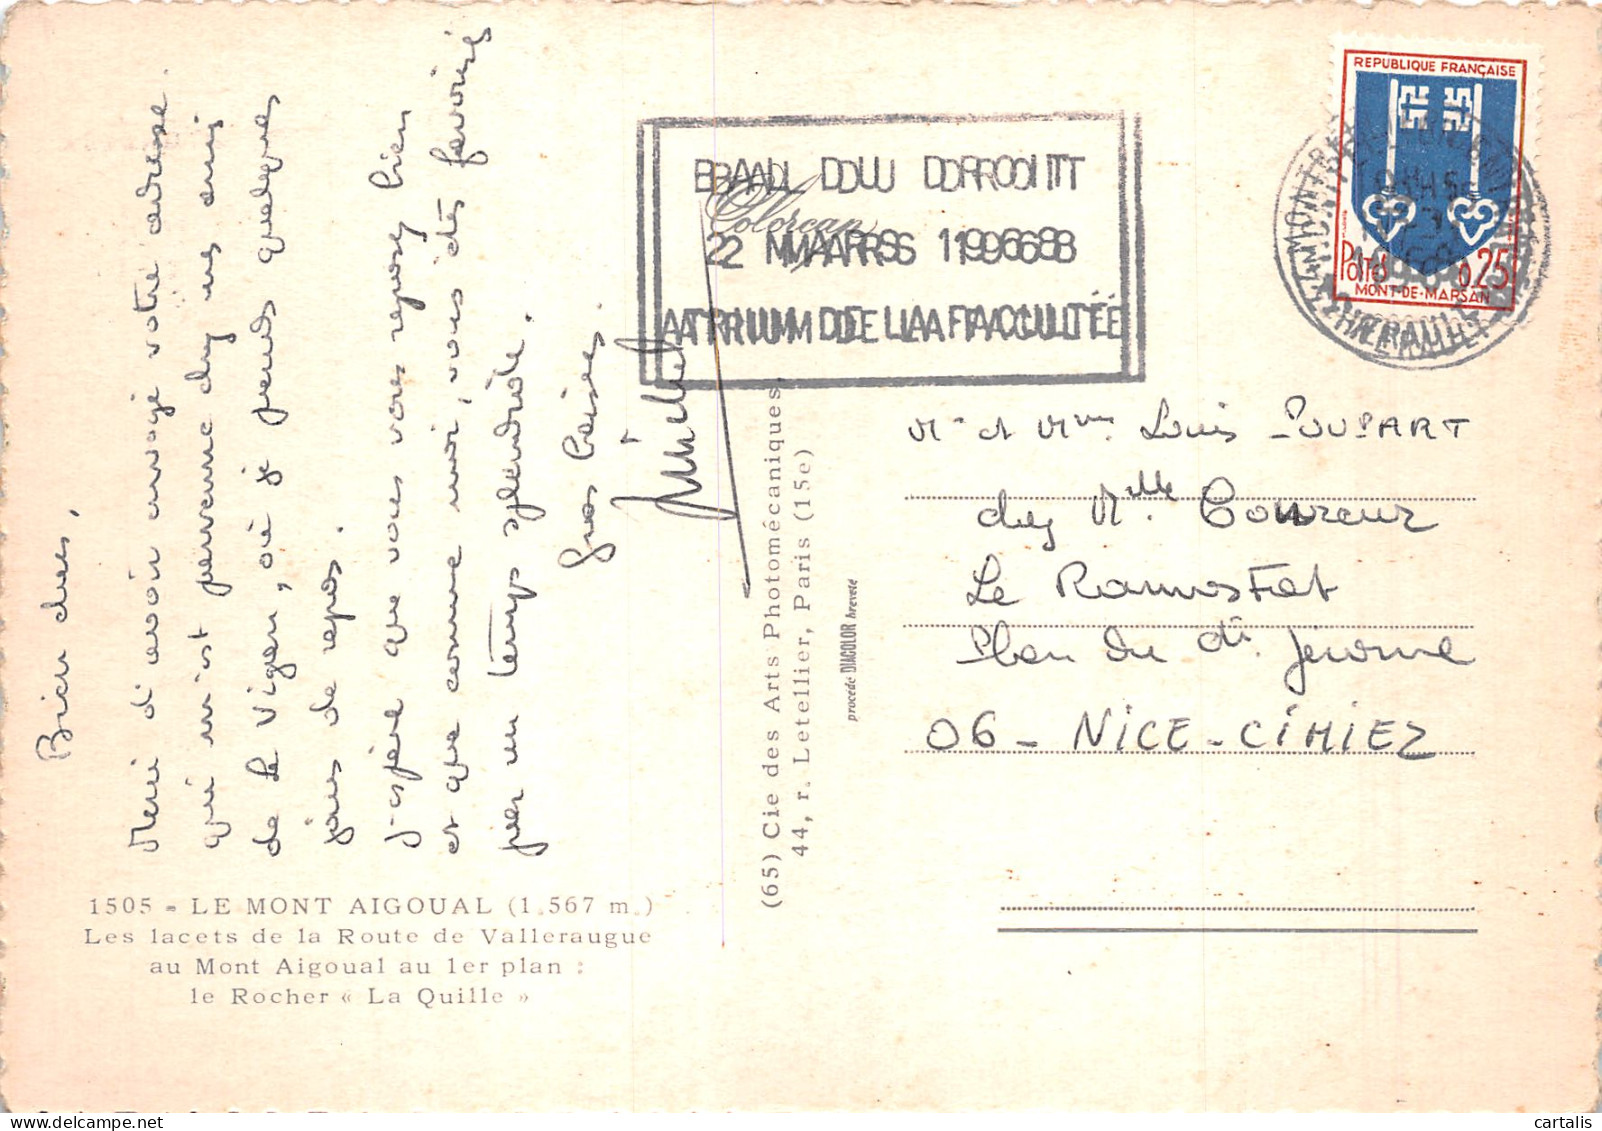 Bien chers,
Merci d'avoir envoyé votre adresse.
qui m'est parvenue chez mes amis
de Le Vigan, où je prends quelques
jours de repos.
J'espère que vous vous reposez bien
et que comme moi, vous êtes favorisés
par un temps splendide.
Gros baisers.
Michel
1505 - LE MONT AIGOUAL (1.567 m.)
Les lacets de la Route de Valleraugue
au Mont Aigoual au 1er plan :
le Rocher « La Quille »
(65) Cie des Arts Photomécaniques,
44, r. Letellier, Paris (15e)
procédé DIACOLOR breveté
Colorcap
BAL DU DROIT
22 MARS 1968
ATRIUM DE LA FACULTÉ
REPUBLIQUE FRANÇAISE
POSTES 0,25
MONT-DE-MARSAN
HERAULT
Mr et Mme Louis POUPART
chez Mlle Coureur
Le
Plan du dt. Jérome
06 - NICE - CIMIEZ
cartalis